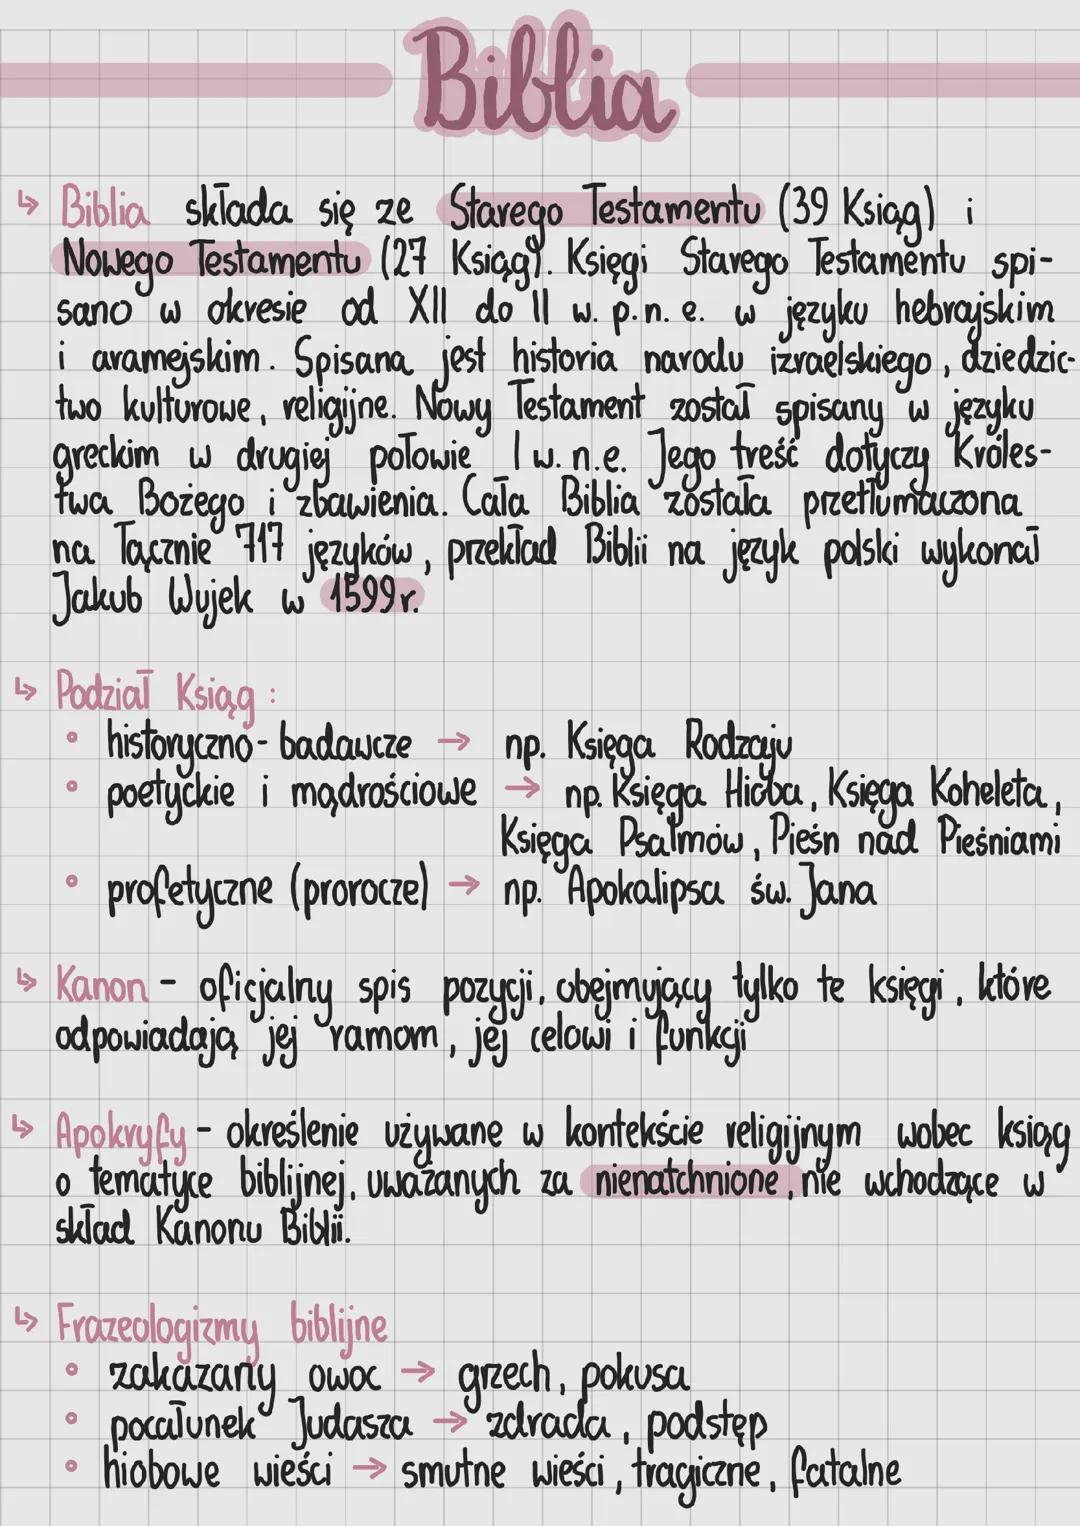 Biblia
↳ Biblia składa się ze Starego Testamentu (39 Ksiąg) i
Nowego Testamentu (27 Ksiąg). Księgi Starego Testamentu spi-
sano w okresie od XII do II w. p.n.e. w języku hebrajskim
i aramejskim. Spisana jest historia narodu izraelskiego, dziedzic-
two kulturowe, religijne. Nowy Testament został spisany w języku
greckim w drugiej połowie I w. n.e. Jego treść dotyczy Króles-
twa Bożego i zbawienia. Cała Biblia została przetłumaczona
na łącznie 717 języków, przekład Biblii na język polski wykonał
Jakub Wujek w 1599r.
↳ Podział Ksiąg:
• historyczno-badawcze → np. Księga Rodzaju
• poetyckie i mądrościowe → np. Księga Hioba, Księga Koheleta,
Księga Psalmów, Pieśn nad Pieśniami
• profetyczne (prorocze) → np. Apokalipsa św. Jana
↳ Kanon - oficjalny spis pozycji, obejmujący tylko te księgi, które
odpowiadają jej ramom, jej celowi i funkcji
↳ Apokryfy - określenie używane w kontekście religijnym wobec ksiąg
o tematyce biblijnej, uważanych za nienatchnione, nie wchodzące w
skład Kanonu Biblii.
↳ Frazeologizmy biblijne
• zakazany owoc → grzech, pokusa
• pocałunek Judasza → zdrada, podstęp
• hiobowe wieści → smutne wieści, tragiczne, fatalne